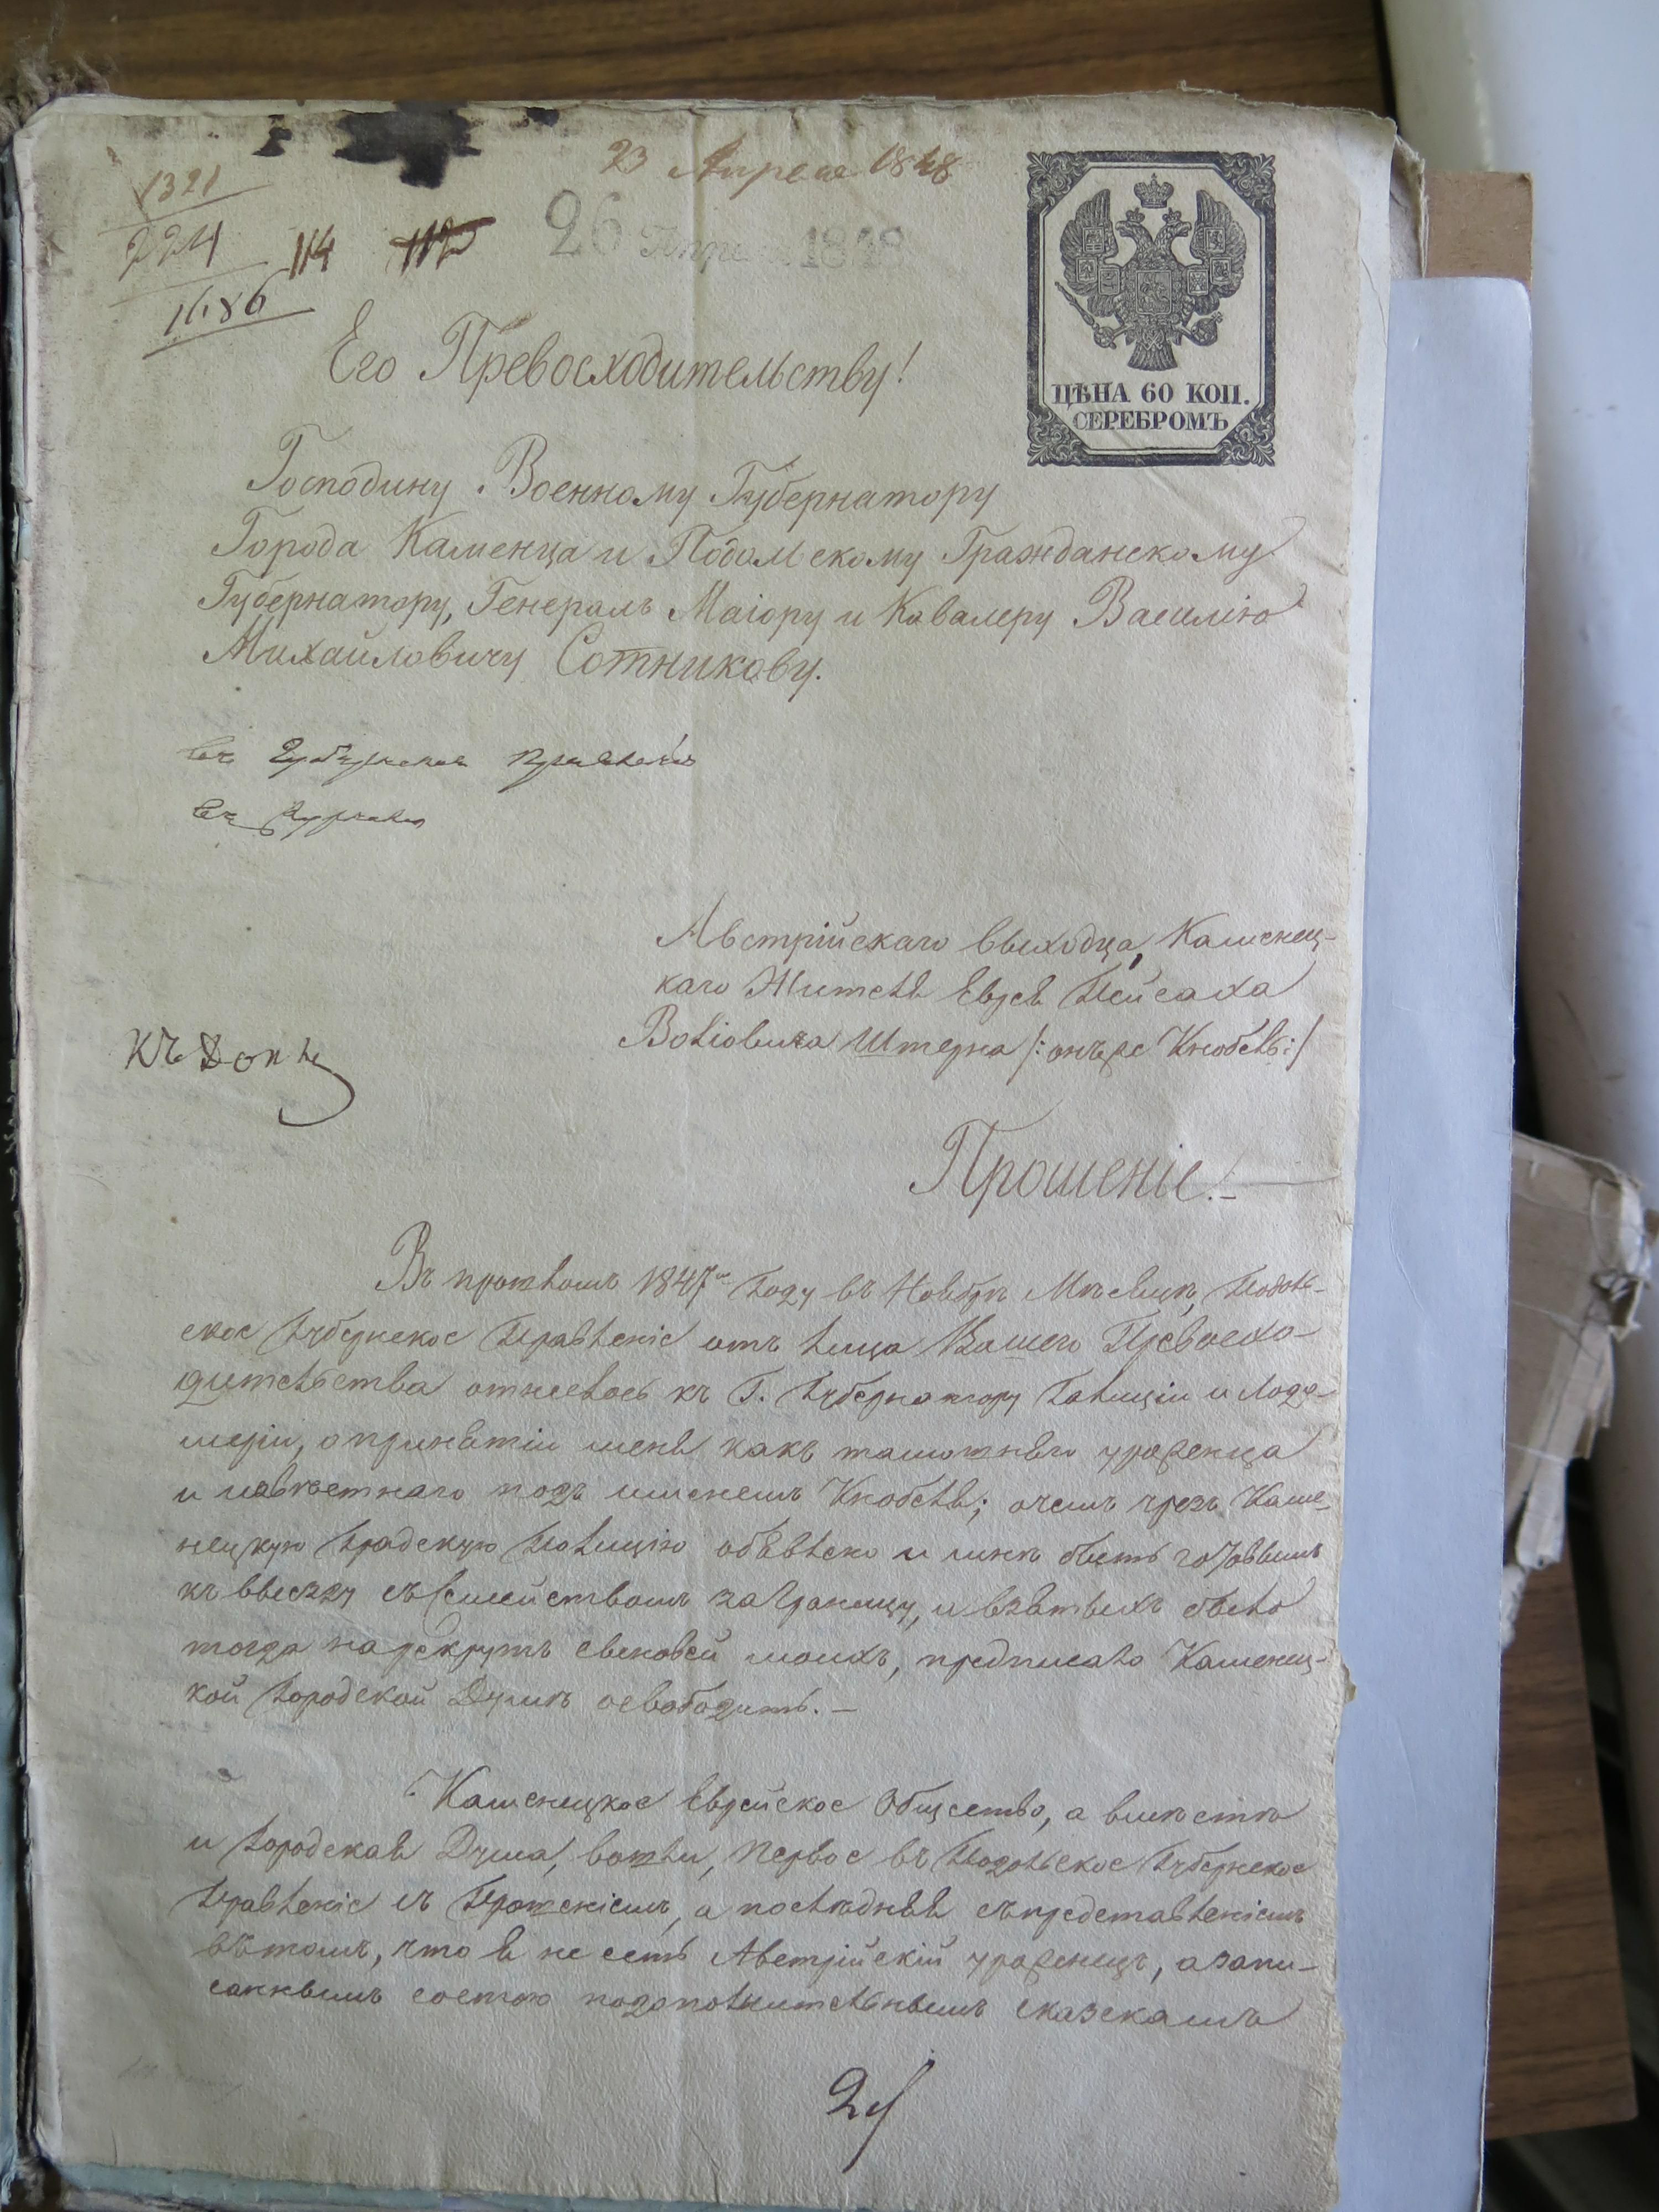 23 Апреля 1848
1321
224
114 112
26 Апреля 1848
1686
ЦѢНА 60 КОП.
СЕРЕБРОМЪ
Его Превосходительству!
Господину Военному Губернатору
Города Каменца и Подольскому Гражданскому
Губернатору, Генералъ Маіору и Кавалеру Василію
Михайловичу Сотникову.
въ Губернское Правленіе
Австрійскаго выходца, Каменец-
каго Жителя Еврея Пейсаха
Волiовича Штерна /: онъ же Кнобель :/
Къ дѣлу
Прошеніе.
Въ прошломъ 1847м Году въ Ноябрѣ Мѣсяцѣ, Подоль-
ское Губернское Правленіе отъ лица Вашего Превосхо-
дительства отнеслось къ Г. Губернатору Галиціи и Лодо-
меріи, о принятіи меня какъ тамошняго уроженца
и извѣстнаго подъ именемъ Кнобеля; о чемъ чрезъ Каме-
нецкую Градскую Полицію объявлено и мнѣ быть готовымъ
къ выезду съ семействомъ за Границу, и взятыхъ было
тогда на рекрутъ сыновей моихъ, предписало Каменец-
кой Городской Думѣ освободить. —
Каменецкое Еврейское Общество, а вмѣстѣ
и Городская Дума, вошли, первое въ Подольское Губернское
Правленіе съ Прошеніемъ, а послѣдняя съ представленіемъ
въ томъ, что я не есть Австрійскій уроженецъ, а запи-
саннымъ состою по дополнительнымъ сказскамъ